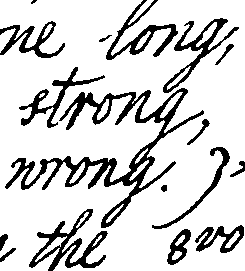 ne long,
strong,
wrong.
the 8vo